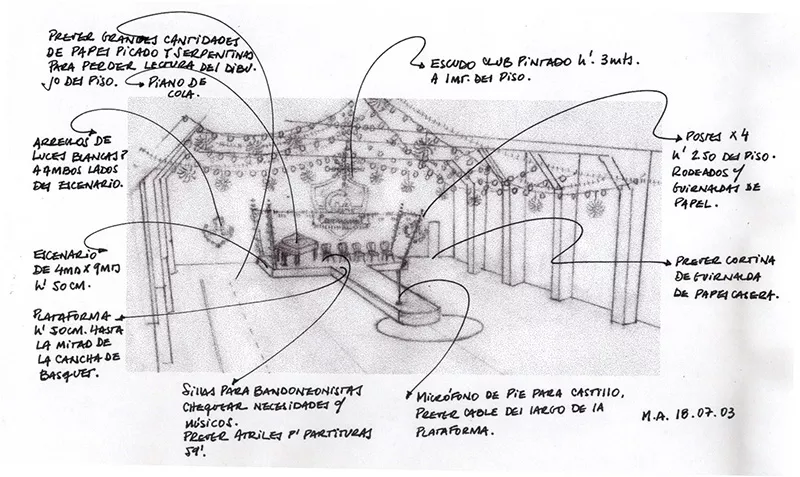 PREVER GRANDES CANTIDADES
DE PAPEL PICADO Y SERPENTINAS
PARA PERDER LECTURA DEL DIBU-
JO DEL PISO.
PIANO DE
COLA.
ESCUDO CLUB PINTADO h'. 3mts.
A 1mt. DEL PISO.
ARREGLOS DE
LUCES BLANCAS?
A AMBOS LADOS
DEL ESCENARIO.
POSTES X 4
h' 250 DEL PISO.
RODEADOS C/
GUIRNALDAS DE
PAPEL.
ESCENARIO
DE 4mts X 9mts
h' 50 CM.
PREVER CORTINA
DE GUIRNALDA
DE PAPEL CASERA.
PLATAFORMA
h' 50CM. HASTA
LA MITAD DE
LA CANCHA DE
BASQUET.
SILLAS PARA BANDONEONISTAS
CHEQUEAR NECESIDADES C/
MÚSICOS.
PREVER ATRILES P' PARTITURAS
MICRÓFONO DE PIE PARA CASTILLO,
PREVER CABLE DEL LARGO DE LA
PLATAFORMA.
M.A. 18.07.03